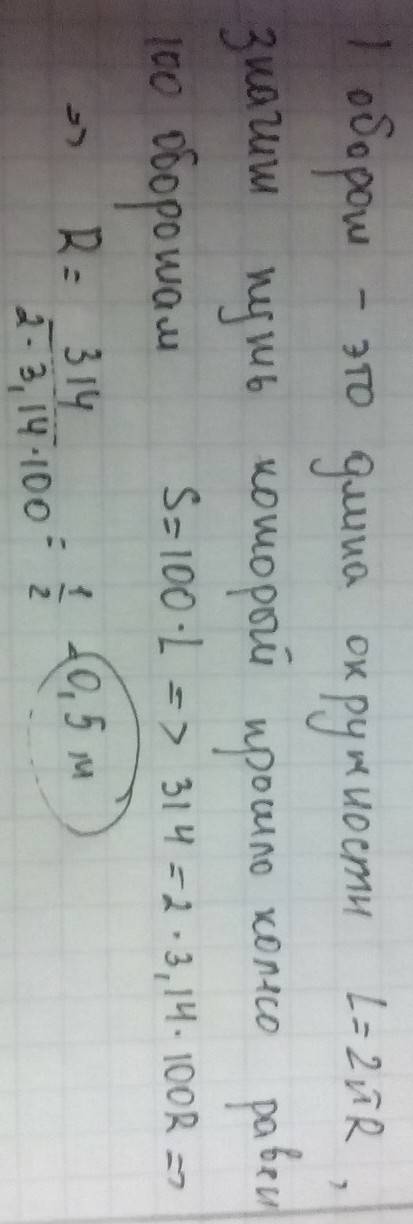 1 оборот - это длина окружности L=2πR,
Значит путь который прошло колесо равен
100 оборотам S=100·L => 314=2·3,14·100R =>
=> R = 314/2·3,14·100 = 1/2 = 0,5 м